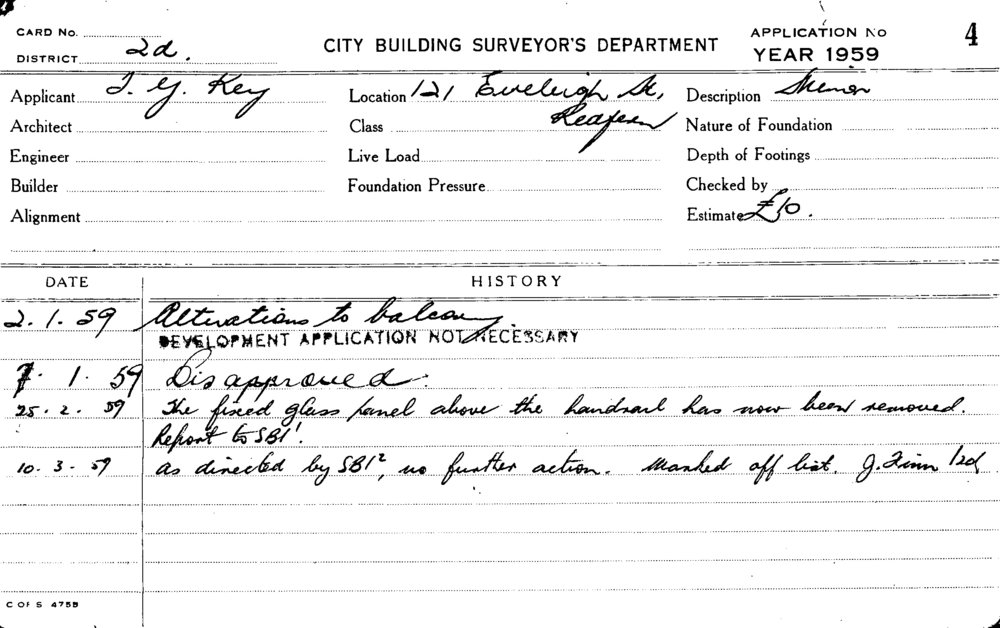 CARD No.
DISTRICT 2d.
CITY BUILDING SURVEYOR'S DEPARTMENT
APPLICATION No
YEAR 1959
4
Applicant T. G. Key
Location 121 Eveleigh St,
Redfern
Description Minor
Architect
Class
Nature of Foundation
Engineer
Live Load
Depth of Footings
Builder
Foundation Pressure
Checked by
Alignment
Estimate £10.
DATE
HISTORY
2. 1. 59 Alterations to balcony.
DEVELOPMENT APPLICATION NOT NECESSARY
7. 1. 59 Disapproved.
25. 2. 59 The fixed glass panel above the handrail has now been removed.
Report to SBI'.
10. 3. 59 as directed by SBI², no further action. Marked off list. J. Finn
C OF S 475B